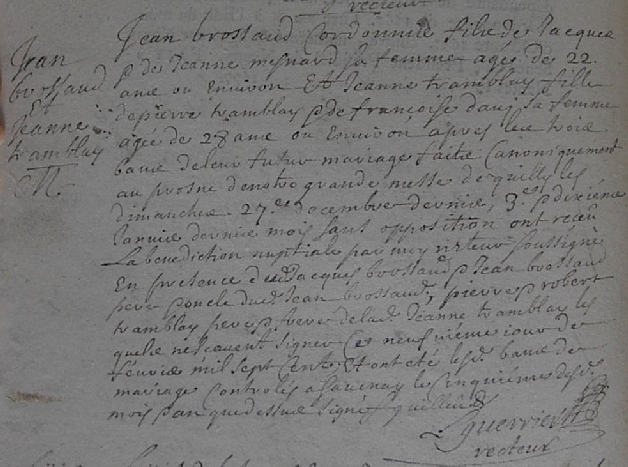 recteur
Jean brossaud Cordonnier fils de Jacques
& de Jeanne mesnard sa femme agés de 22
ans ou Environ Et Jeanne tramblay fille
de pierre tramblay & de francoise dauj sa femme
agée de 28 ans ou Environ apres les trois
bans de leur futur mariage faits Canoniquement
au prosne de nostre grande messe de quilly les
dimanches 27.e decembre dernier, 3.e & dixième
Janvier dernier mois sans opposition ont receu
La benediction nuptiale par moy recteur soussigné
En presence dud. Jacques brossaud & Jean brossaud
pere & oncle dud. Jean brossaud, pierre & robert
tramblay pere & frere de lad. Jeanne tramblay les
quels ne scavent signer Ces neufvième iour de
févrie mil sept Cents Et ont été lesd. bans de
mariage Controlés a Savenay le Cinquième desd.
mois & an que dessus signé
guerrier
recteur
Jean
brossaud
Et
Jeanne
tramblay
M.